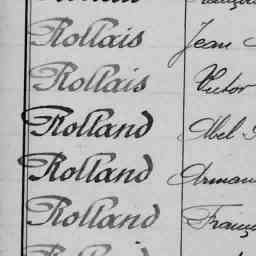 Rollais Jean
Rollais Victor
Rolland Abel
Rolland Arman
Rolland Franç